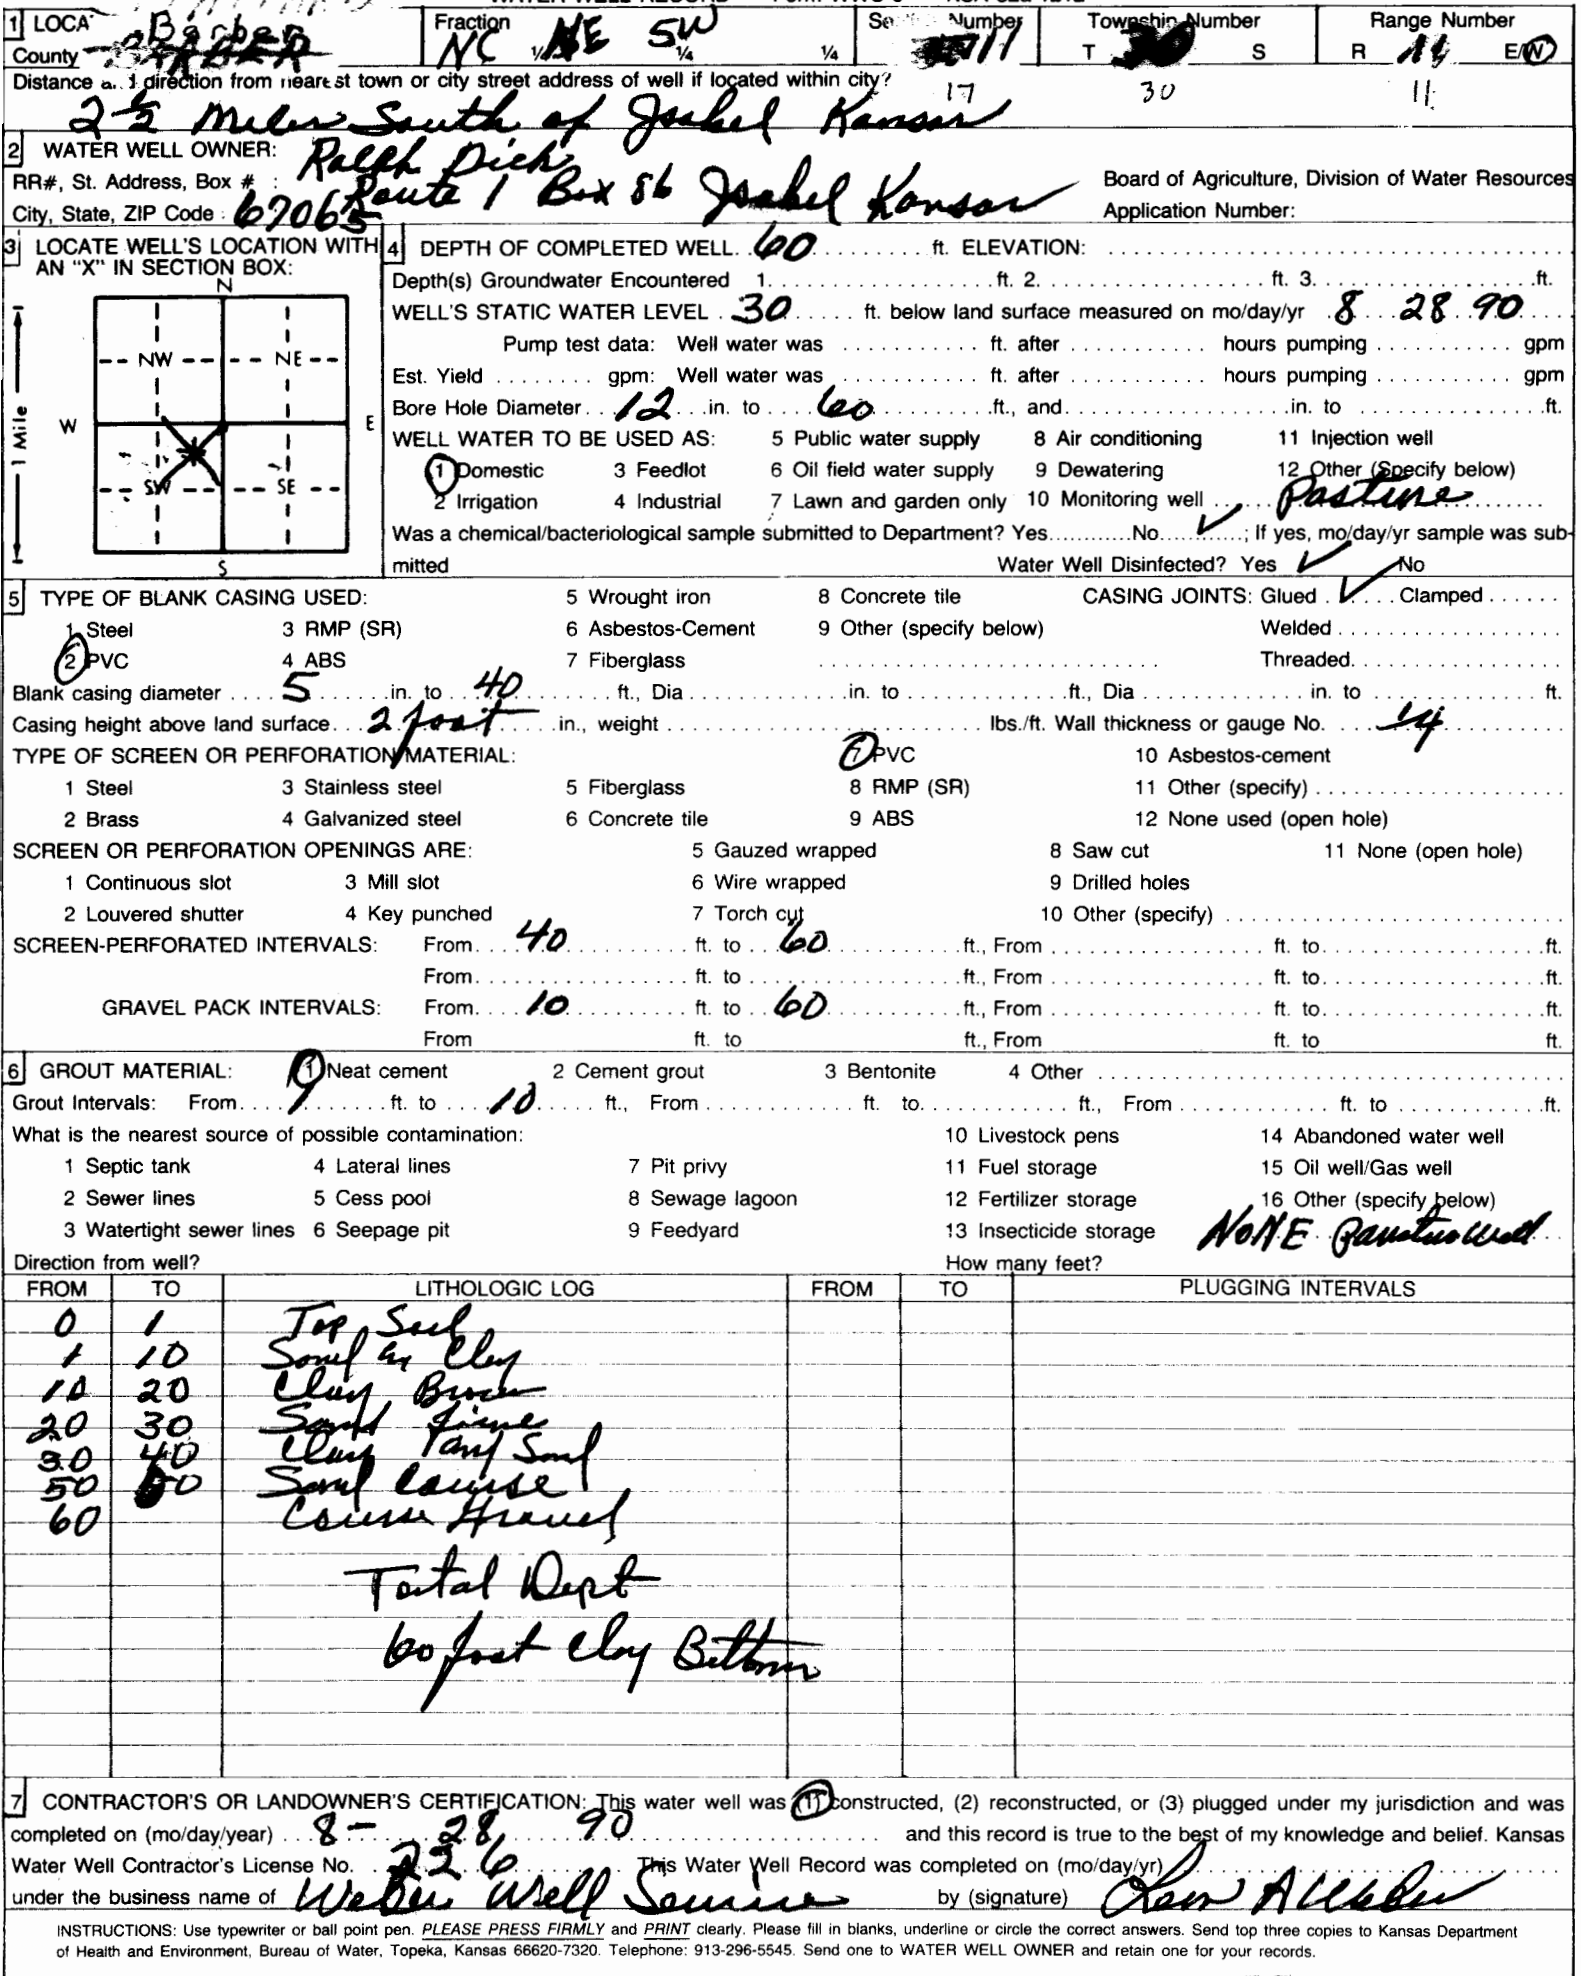 1 LOCA Barber Fraction Number Township Number Range Number
County NC ¼ NE ¼ SW ¼ T 30 S R 11 E/W
Distance a direction from nearest town or city street address of well if located within city? 17 30 11
2 ½ Miles South of Isabel Kansas
2 WATER WELL OWNER: Ralph Dick
RR#, St. Address, Box # : Route 1 Box 86 Isabel Kansas Board of Agriculture, Division of Water Resources
City, State, ZIP Code : 67065 Application Number:
3 LOCATE WELL'S LOCATION WITH AN "X" IN SECTION BOX:
N
NW NE
W E
SW SE
S
1 Mile
4 DEPTH OF COMPLETED WELL. 60 ft. ELEVATION:
Depth(s) Groundwater Encountered 1. ft. 2. ft. 3. ft.
WELL'S STATIC WATER LEVEL 30 ft. below land surface measured on mo/day/yr 8 28 90
Pump test data: Well water was ft. after hours pumping gpm
Est. Yield gpm: Well water was ft. after hours pumping gpm
Bore Hole Diameter 12 in. to 60 ft., and in. to ft.
WELL WATER TO BE USED AS: 5 Public water supply 8 Air conditioning 11 Injection well
1 Domestic 3 Feedlot 6 Oil field water supply 9 Dewatering 12 Other (Specify below)
2 Irrigation 4 Industrial 7 Lawn and garden only 10 Monitoring well Pasture
Was a chemical/bacteriological sample submitted to Department? Yes No ✓; If yes, mo/day/yr sample was sub-
mitted Water Well Disinfected? Yes ✓ No
5 TYPE OF BLANK CASING USED: 5 Wrought iron 8 Concrete tile CASING JOINTS: Glued ✓ Clamped
1 Steel 3 RMP (SR) 6 Asbestos-Cement 9 Other (specify below) Welded
2 PVC 4 ABS 7 Fiberglass Threaded
Blank casing diameter 5 in. to 40 ft., Dia in. to ft., Dia in. to ft.
Casing height above land surface 2 foot in., weight lbs./ft. Wall thickness or gauge No. 
TYPE OF SCREEN OR PERFORATION MATERIAL: 7 PVC 10 Asbestos-cement
1 Steel 3 Stainless steel 5 Fiberglass 8 RMP (SR) 11 Other (specify)
2 Brass 4 Galvanized steel 6 Concrete tile 9 ABS 12 None used (open hole)
SCREEN OR PERFORATION OPENINGS ARE: 5 Gauzed wrapped 8 Saw cut 11 None (open hole)
1 Continuous slot 3 Mill slot 6 Wire wrapped 9 Drilled holes
2 Louvered shutter 4 Key punched 7 Torch cut 10 Other (specify)
SCREEN-PERFORATED INTERVALS: From 40 ft. to 60 ft., From ft. to ft.
From ft. to ft., From ft. to ft.
GRAVEL PACK INTERVALS: From 10 ft. to 60 ft., From ft. to ft.
From ft. to ft., From ft. to ft.
6 GROUT MATERIAL: 1 Neat cement 2 Cement grout 3 Bentonite 4 Other
Grout Intervals: From ft. to 10 ft., From ft. to ft., From ft. to ft.
What is the nearest source of possible contamination: 10 Livestock pens 14 Abandoned water well
1 Septic tank 4 Lateral lines 7 Pit privy 11 Fuel storage 15 Oil well/Gas well
2 Sewer lines 5 Cess pool 8 Sewage lagoon 12 Fertilizer storage 16 Other (specify below)
3 Watertight sewer lines 6 Seepage pit 9 Feedyard 13 Insecticide storage NONE
Direction from well? How many feet?
FROM TO LITHOLOGIC LOG FROM TO PLUGGING INTERVALS
0 1 Top Soil
1 10 Clay
10 20 Clay Brown
20 30 Sand
30 40 Clay Sand
50 60 Sand Course
60 Course Gravel
Total Dept
60 foot Clay Bottom
7 CONTRACTOR'S OR LANDOWNER'S CERTIFICATION: This water well was (1) constructed, (2) reconstructed, or (3) plugged under my jurisdiction and was
completed on (mo/day/year) 8 - 28 90 and this record is true to the best of my knowledge and belief. Kansas
Water Well Contractor's License No. 226 This Water Well Record was completed on (mo/day/yr)
under the business name of Weber Well Service by (signature)
INSTRUCTIONS: Use typewriter or ball point pen. PLEASE PRESS FIRMLY and PRINT clearly. Please fill in blanks, underline or circle the correct answers. Send top three copies to Kansas Department
of Health and Environment, Bureau of Water, Topeka, Kansas 66620-7320. Telephone: 913-296-5545. Send one to WATER WELL OWNER and retain one for your records.